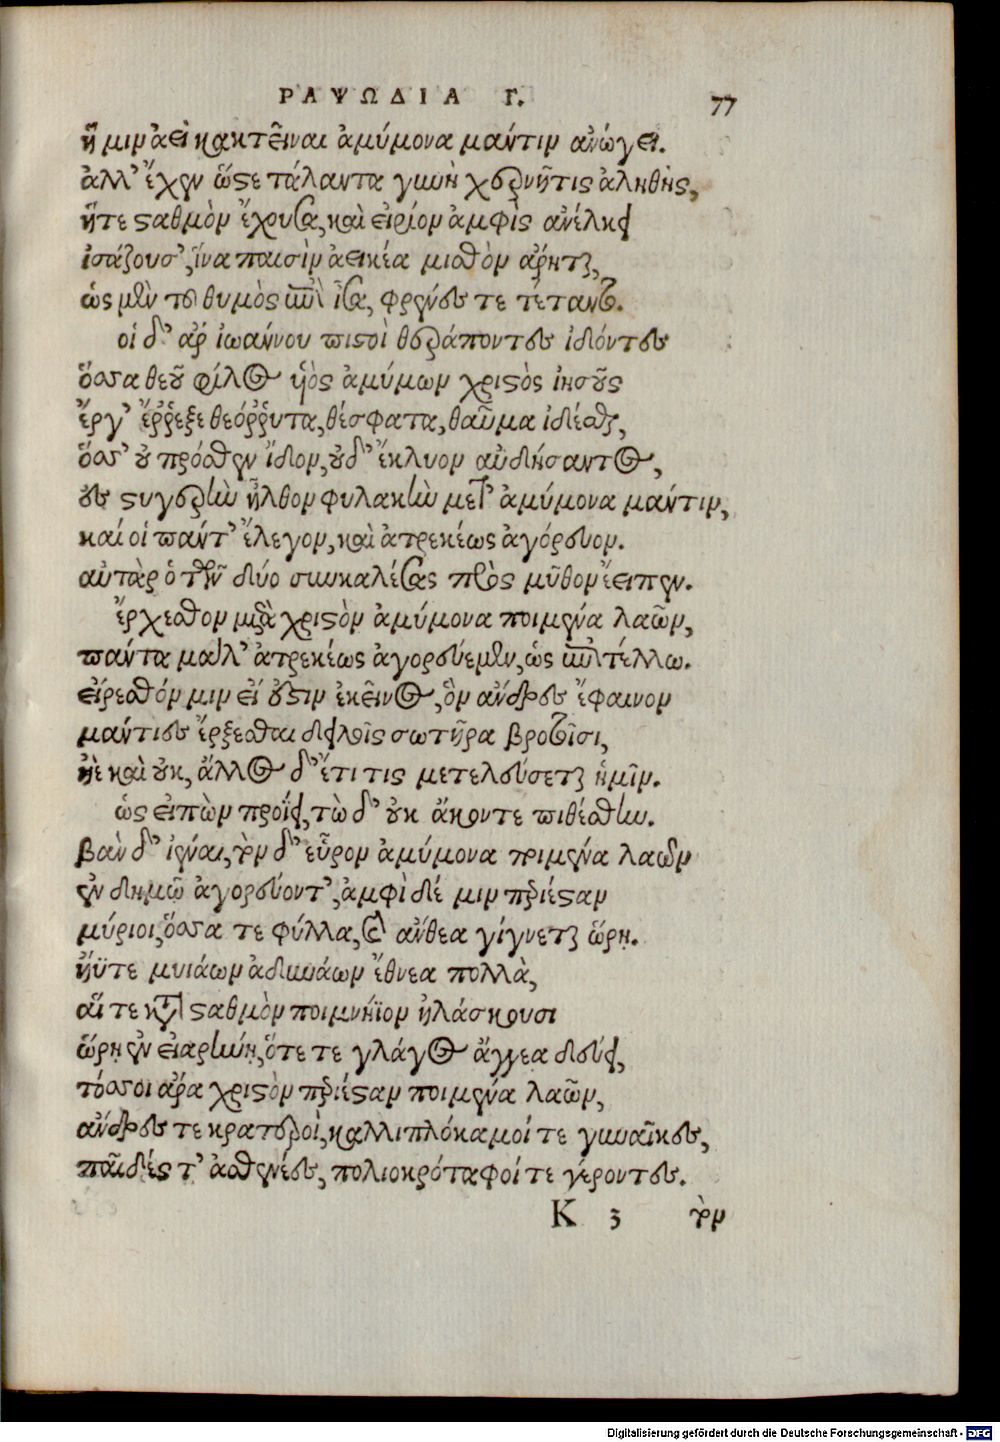 ΡΑΨΩΔΙΑ Γ. 77
ἤ μιν ἀεὶ κακτεῖναι ἀμύμονα μάντιν ἀνώγει.
ἀλλ' ἔχεν ὥστε τάλαντα γυνὴ χερνῆτις ἀληθὴς,
ἥτε σταθμὸν ἔχουσα, καὶ εἰρίον ἀμφὶς ἀνέλκει
ἰσάζουσ', ἵνα παισὶν ἀεικέα μισθὸν ἄρηται,
ὡς μὲν τοῦ θυμὸς ἐπὶ ἶσα, φρένες τε τέταντο.
οἱ δ' ἂρ ἰωάννου πιστοὶ θεράποντες ἰδόντες
ὅσσα θεοῦ φίλος ἡὸς ἀμύμων χριστὸς ἰησοῦς
ἔργ' ἔῤῥεξε θεόῤῥυτα, θέσφατα, θαῦμα ἰδέσθαι,
ὅσσ' οὐ πρόσθεν ἴδον, οὐδ' ἔκλυον αὐδήσαντος,
ἐς στυγερὴν ἦλθον φυλακὴν μετ' ἀμύμονα μάντιν,
καί οἱ πάντ' ἔλεγον, καὶ ἀτρεκέως ἀγόρευον.
αὐτὰρ ὁ τῶν δύο συγκαλέσας πρὸς μῦθον ἔειπεν.
ἔρχεσθον μετὰ χριστὸν ἀμύμονα ποιμένα λαῶν,
πάντα μάλ' ἀτρεκέως ἀγορευέμεν, ὡς ἐπιτέλλω.
εἴρεσθόν μιν εἰ οὗτιν ἐκεῖνος, ὃν ἄνδρες ἔφαινον
μάντιες ἔρξεσθαι δειλοῖς σωτῆρα βροτοῖσι,
ἠὲ καὶ οὐκ, ἄλλος δ' ἔτι τις μετελεύσεται ἡμῖν.
ὡς εἰπὼν προΐει, τὼ δ' οὐκ ἄκοντε πιθέσθην.
βὰν δ' ἰέναι, τὸν δ' εὗρον ἀμύμονα ποιμένα λαῶν
ἐν δημῷ ἀγορεύοντ', ἀμφὶ δέ μιν περίεσταν
μύριοι, ὅσσα τε φύλλα, καὶ ἄνθεα γίγνεται ὥρῃ.
ἠΰτε μυιάων ἀδινάων ἔθνεα πολλὰ,
αἵ τε κατὰ σταθμὸν ποιμνήϊον ἠλάσκουσι
ὥρῃ ἐν εἰαρινῇ, ὅτε τε γλάγος ἄγγεα δεύει,
τόσσοι ἄρα χριστὸν περίεσταν ποιμένα λαῶν,
ἄνδρες τε κρατεροὶ, καλλιπλόκαμοί τε γυναῖκες,
παῖδές τ' ἀσθενέες, πολιοκρόταφοί τε γέροντες.
Κ 3 τὸν
Digitalisierung gefördert durch die Deutsche Forschungsgemeinschaft - DFG